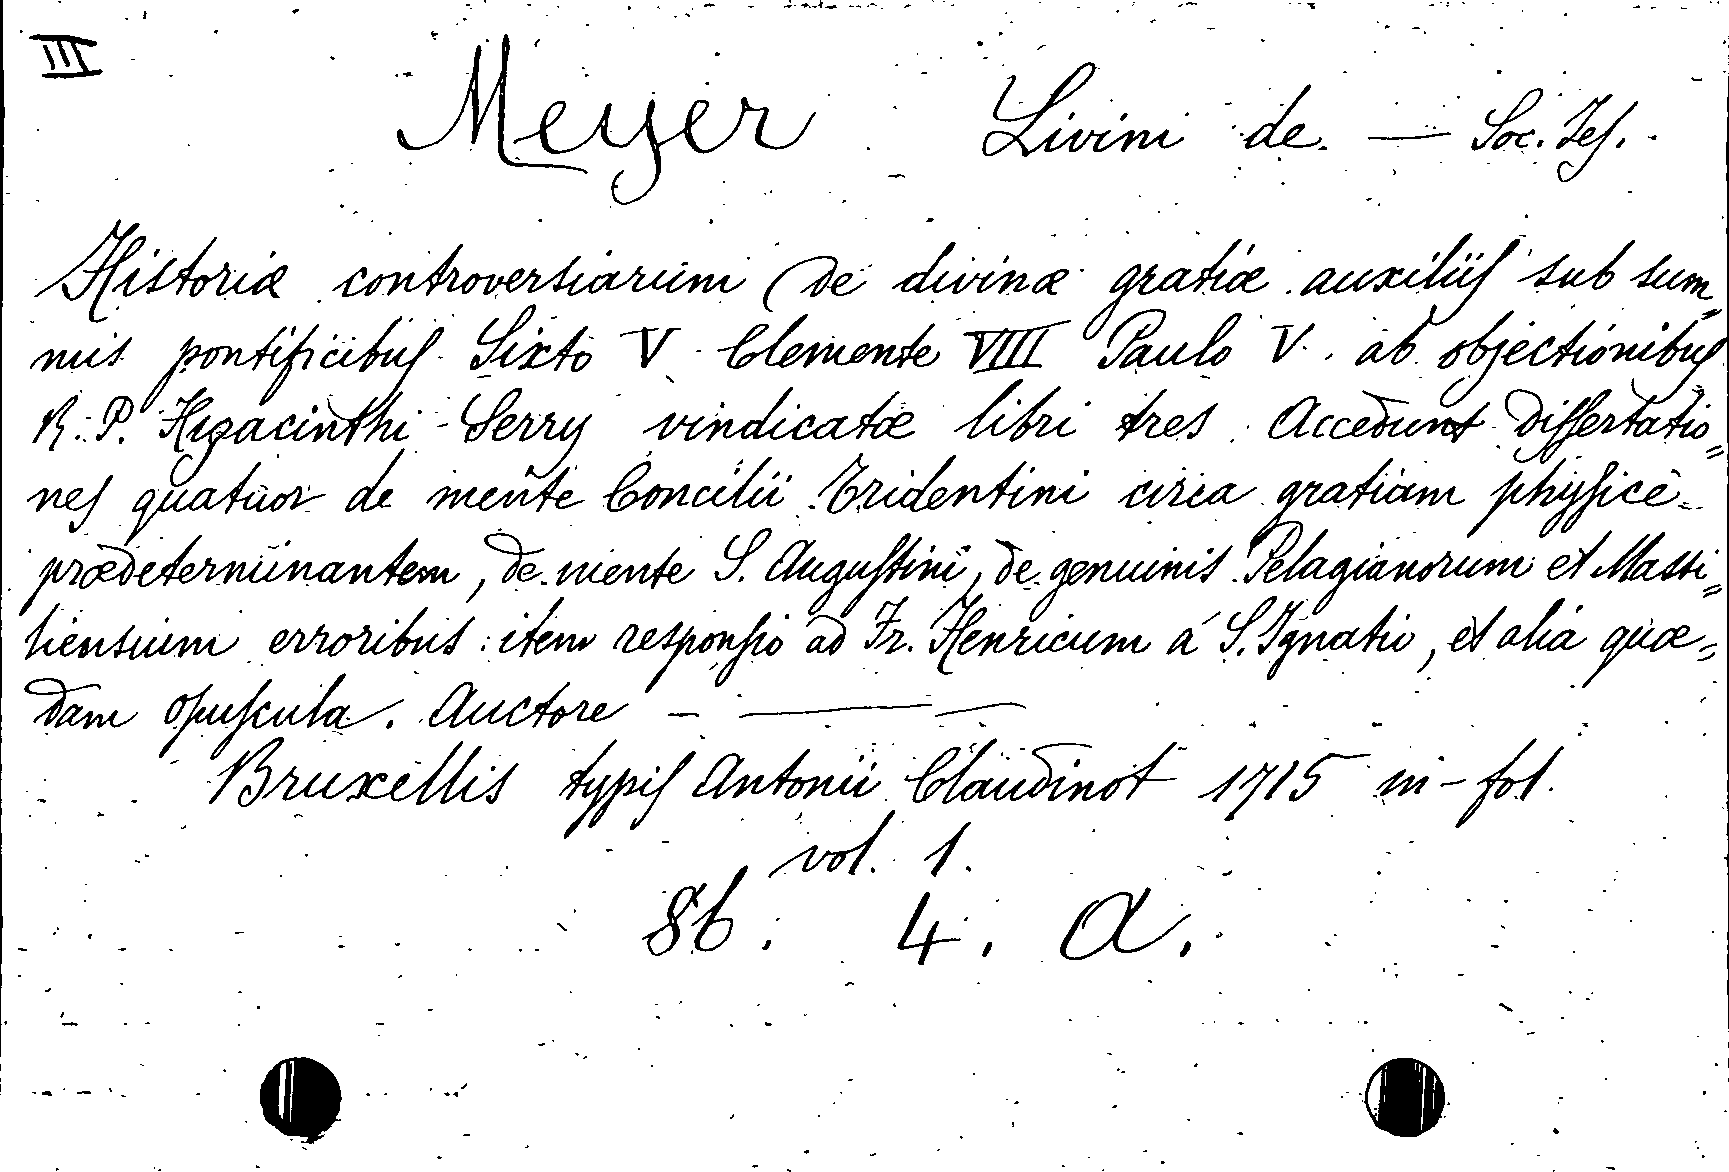 III
Meyer Livini de. — Soc. Jes.
Historiæ controversiarum de divinæ gratiæ auxiliis sub sum=
mis pontificibus Sixto V Clemente VIII Paulo V. ab objectionibus
R. P. Hyacinthi Serry vindicatæ libri tres. Accedunt dissertatio=
nes quatuor de mente Concilii Tridentini circa gratiam physicè=
prædeterminantem, de mente S. Augustini, de genuinis Pelagianorum et Massi=
liensium erroribus: item responsio ad Fr. Henricum à S. Ignatio, et alia quæ=
dam opuscula. Auctore - — —
Bruxellis typis Antonii Claudinot 1715 in-fol.
vol. 1.
86. 4. A.